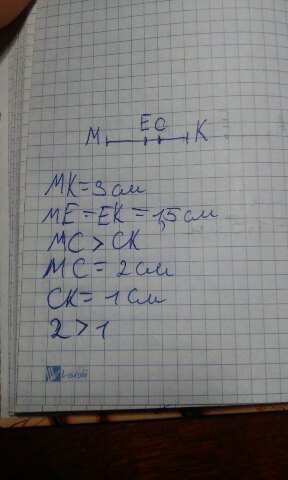 M E C K
MK = 3 см
ME = EK = 1,5 см
MC > CK
MC = 2 см
CK = 1 см
2 > 1